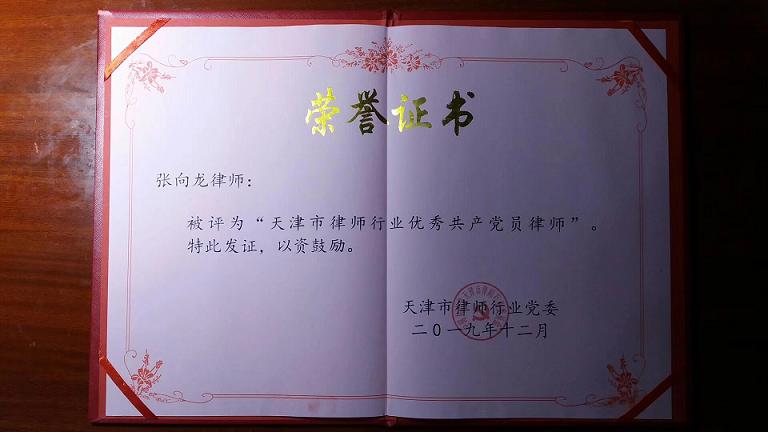 荣誉证书
张向龙律师：
被评为“天津市律师行业优秀共产党员律师”。
特此发证，以资鼓励。
天津市律师行业党委
二0一九年十二月